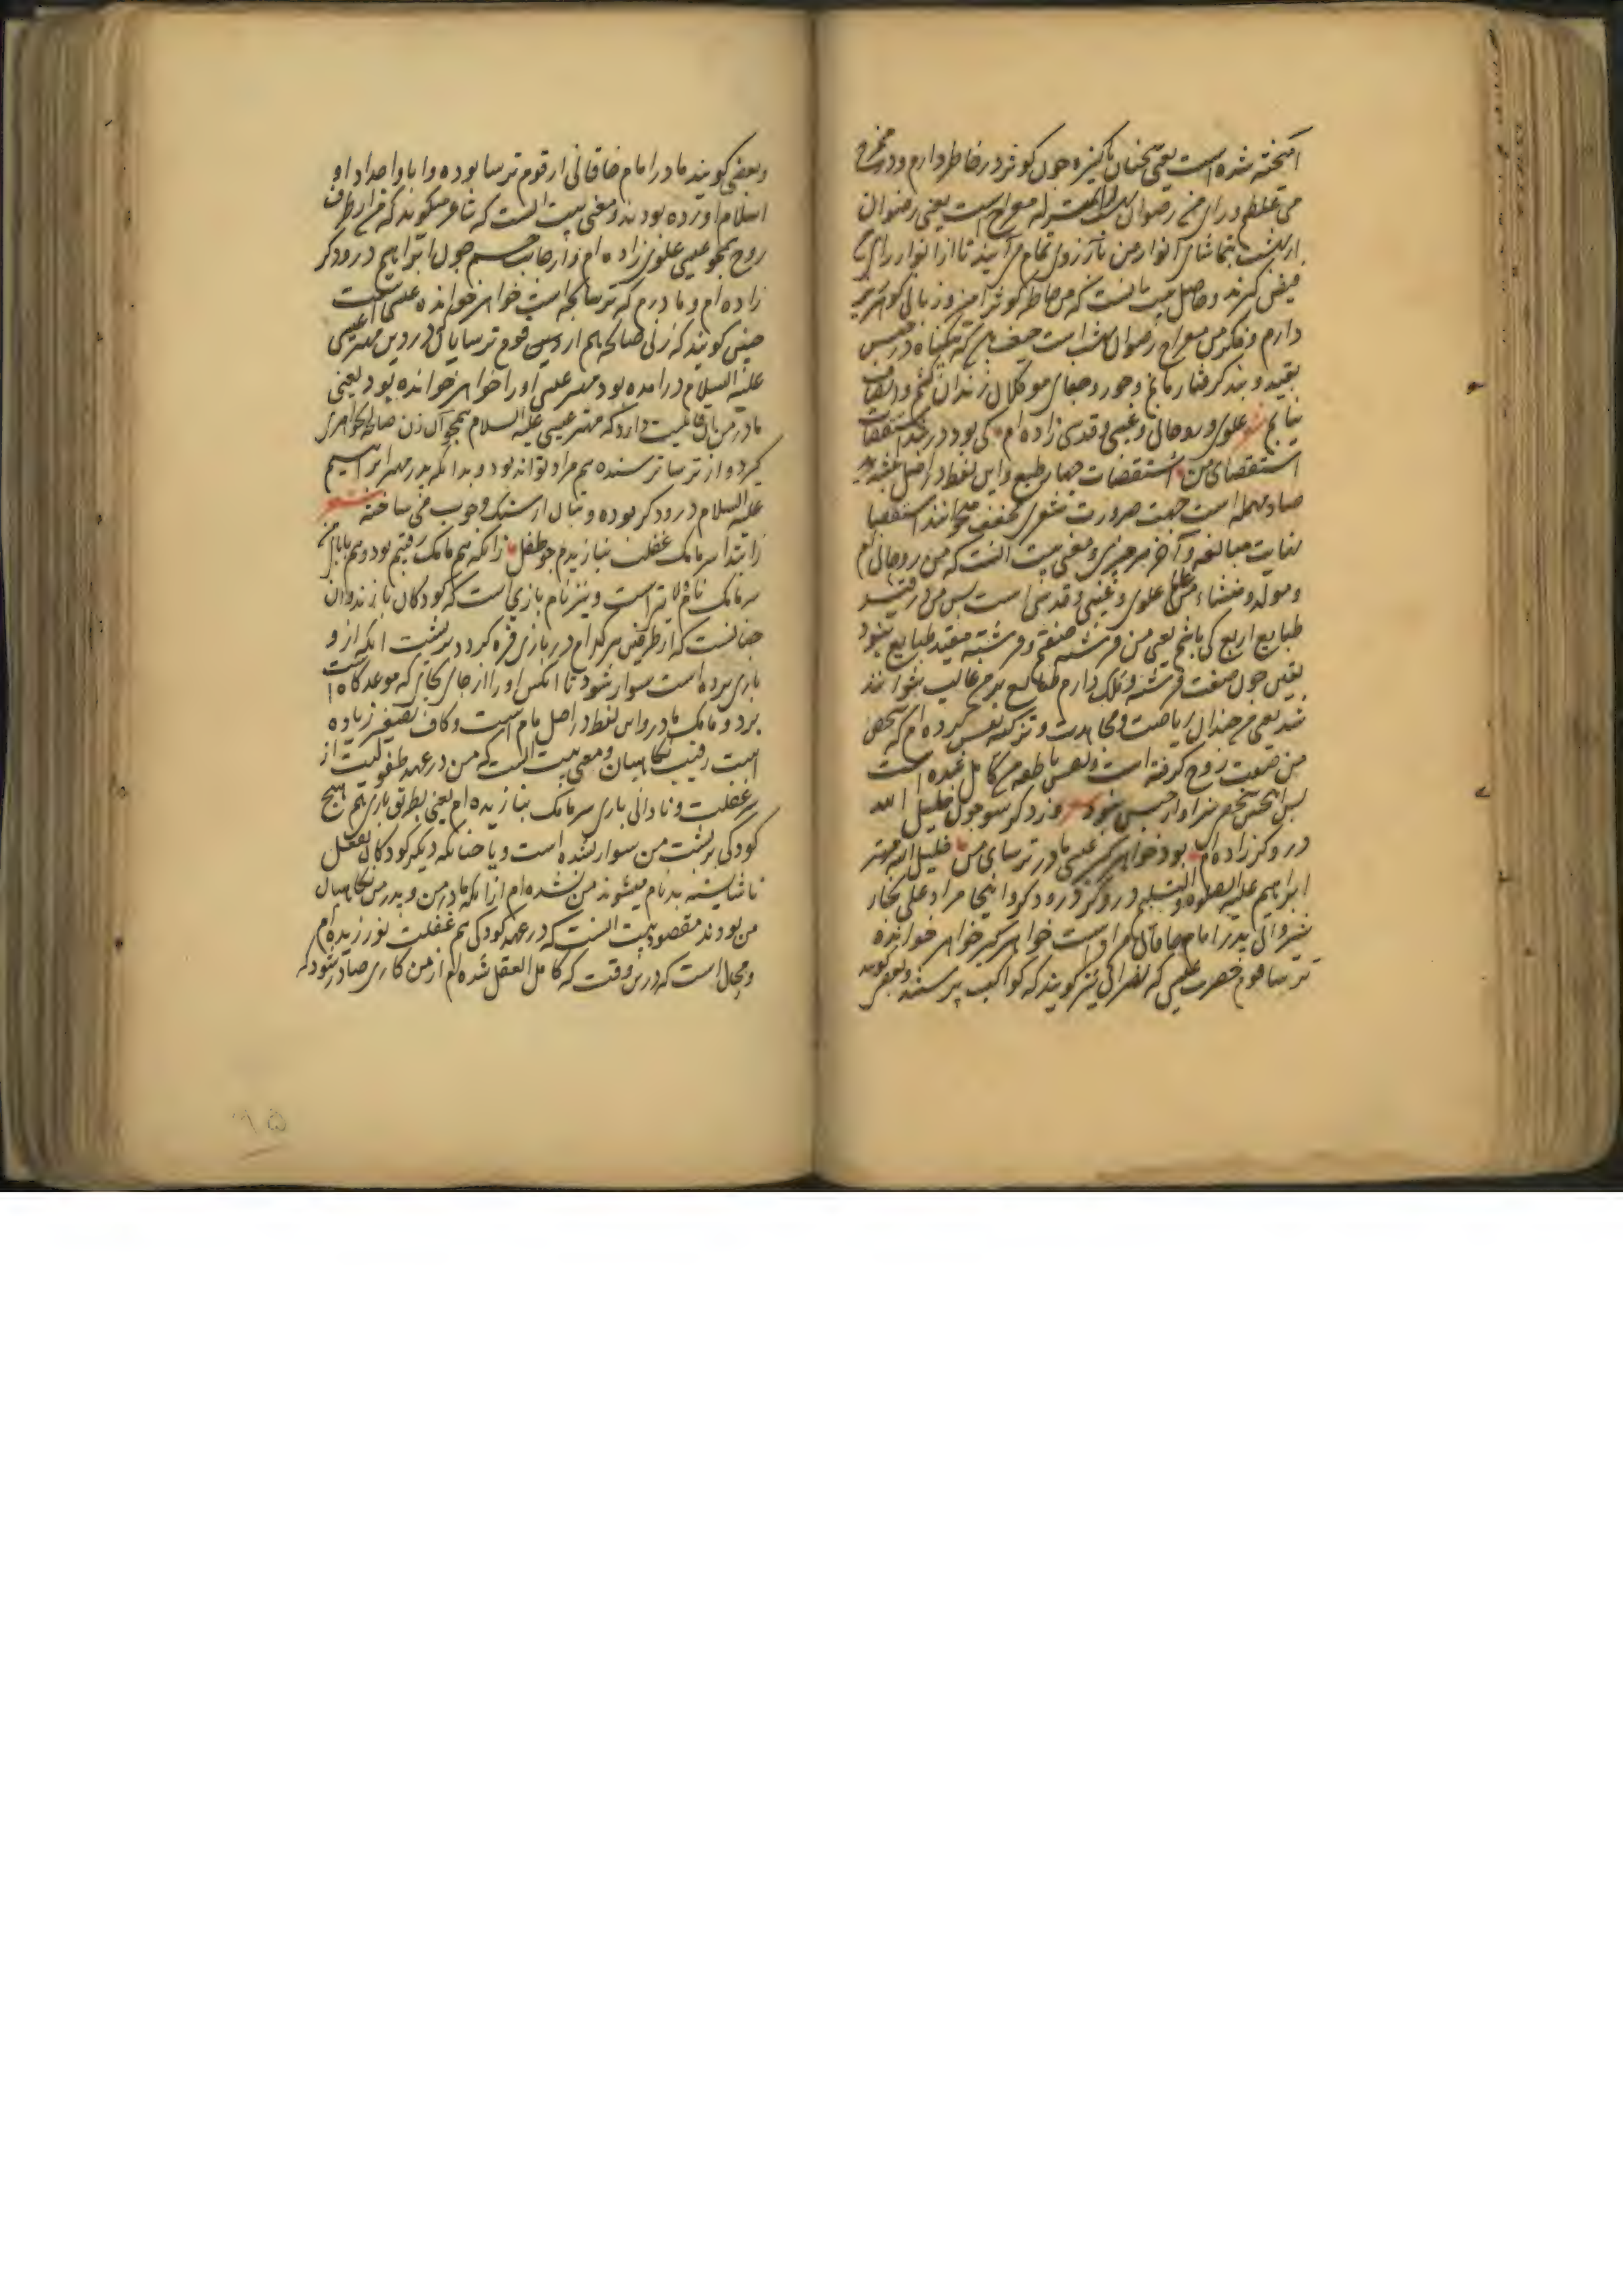 آمیخته شده است یعنی سخنان پاکیزه چون کوثر در خاطر دارم و در
می غلطم و رای من رضوان را معراج است یعنی رضوان
از بهشت بتماشای انوار من بآرزوی تمام می آیند تا از انوار رای
فیض گیرند و حاصل بیت آنست که من خاطر کوثر آمیز و زبانی گوهر ریز
دارم و فکر من معراج رضوان بهشت است حیف باشد که بیگناه در حبس
بقید و بند گرفتار مانم و جور و جفای موکلان زندان کشم و انصاف
نیابم شعر علوی و روحانی و غیبی و قدسی زاده ام کی بود در بند استقصات
استقصای من استقصات چهار طبع و این لفظ در اصل
صاد مهمله است جهت ضرورت شعری مخفف میخوانند استقصا
نهایت مبالغه و آخر هر چیزی و معنی بیت آنست که من روحانی ام
و مولد و منشاء من علوی و غیبی و قدسی است پس من در قید
طبایع اربع کی باشم یعنی من فرشته صفتم و فرشته مقید طبایع نبود
یعنی چون صفت فرشته و ملک دارم طبایع بر من غالب نتوانند
شد یعنی من چندان ریاضت و مجاهدت و تزکیه نفس کرده ام که شخص
من صفت روح گرفته است و نفس ناطقه من کامل شده است
پس اینچنین شخص سزاوار حبس نبود شعر وز دگر سو چون خلیل الله
دروگر زاده ام بود خواهر گیر عیسی مادر ترسای من خلیل الله مهتر
ابراهیم علیه الصلوة و التسلیم دروگر و درودگر و اینجا مراد علی نجار
شیروانی پدر امام خاقانی مراد است خواهر گیر خواهر خوانده
ترسا قوم حضرت عیسی که نصرانی نیز گویند که کواکب پرستند و بعضی گویند
و بعضی گویند مادر امام خاقانی از قوم ترسا بوده و ابا و اجداد او
اسلام آورده بودند و معنی بیت آنست که شاعر میگوید که من از طرف
روح همچو عیسی علوی زاده ام و از جانب جسم چون ابراهیم درودگر
زاده ام و مادرم که ترسا بچه است خواهر خوانده عیسی است
چنین گویند که زنی صالحه هم از دیس قوم ترسایان در دین مهتر عیسی
علیه السلام درآمده بود مهتر عیسی او را خواهر خوانده بود یعنی
مادر من نیز قابلیت دارد که مهتر عیسی علیه السلام همچو آن زن صالحه خواهری
گیرد و از ترسا ترسنده هم مراد تواند بود و بدانکه پدر مهتر ابراهیم
علیه السلام درودگر بوده و بتان از سنگ و چوب می ساخته شعر
ز ابتدا سرمامک غفلت نبازیدم چو طفل زانکه هم مامک رقیبم بود و هم بابای من
سرمامک نام است و نیز نام بازی است که کودکان بازند و آن
چنانست که از طرفین هر کدام در بازی فره گردد بر پشت آنکه از و
بازی برده است سوار شود تا آنکس او را از جای بجای که موعدگاه است
برد و مامک مادر و این لفظ در اصل مام است و کاف تصغیر زیاده
است رقیب نگاهبان و معنی بیت آنست که من در عهد طفولیت از
سر غفلت و نادانی بازی سرمامک نبازیده ام یعنی بطریق بازی هم هیچ
کودکی بر پشت من سوار نشده است و یا چنانکه دیگر کودکان بفعل
ناشایسته بدنام میشوند من نشده ام از آنکه مادر من و پدر من نگاهبان
من بودند مقصود بیت آنست که در عهد کودکی هم غفلت نورزیده ام
و محال است که درین وقت که کامل العقل شده ام از من کاری صادر شود که
۹۵